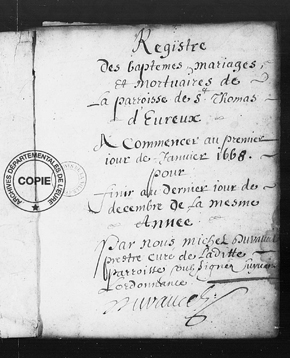 Registre
Des baptemes mariages,
et mortuaires de
La parroisse de St Thomas
d'Eureux.
A Commencer au premier
iour de Janvier 1668.
pour
finir au Dernier iour de
decembre de La mesme
Année
Par nous michel Duvaucel
prestre Curé de Laditte
parroisse soussigné suivant
L'ordonnance
Duvaucel
ARCHIVES DÉPARTEMENTALES DE L'EURE
COPIE